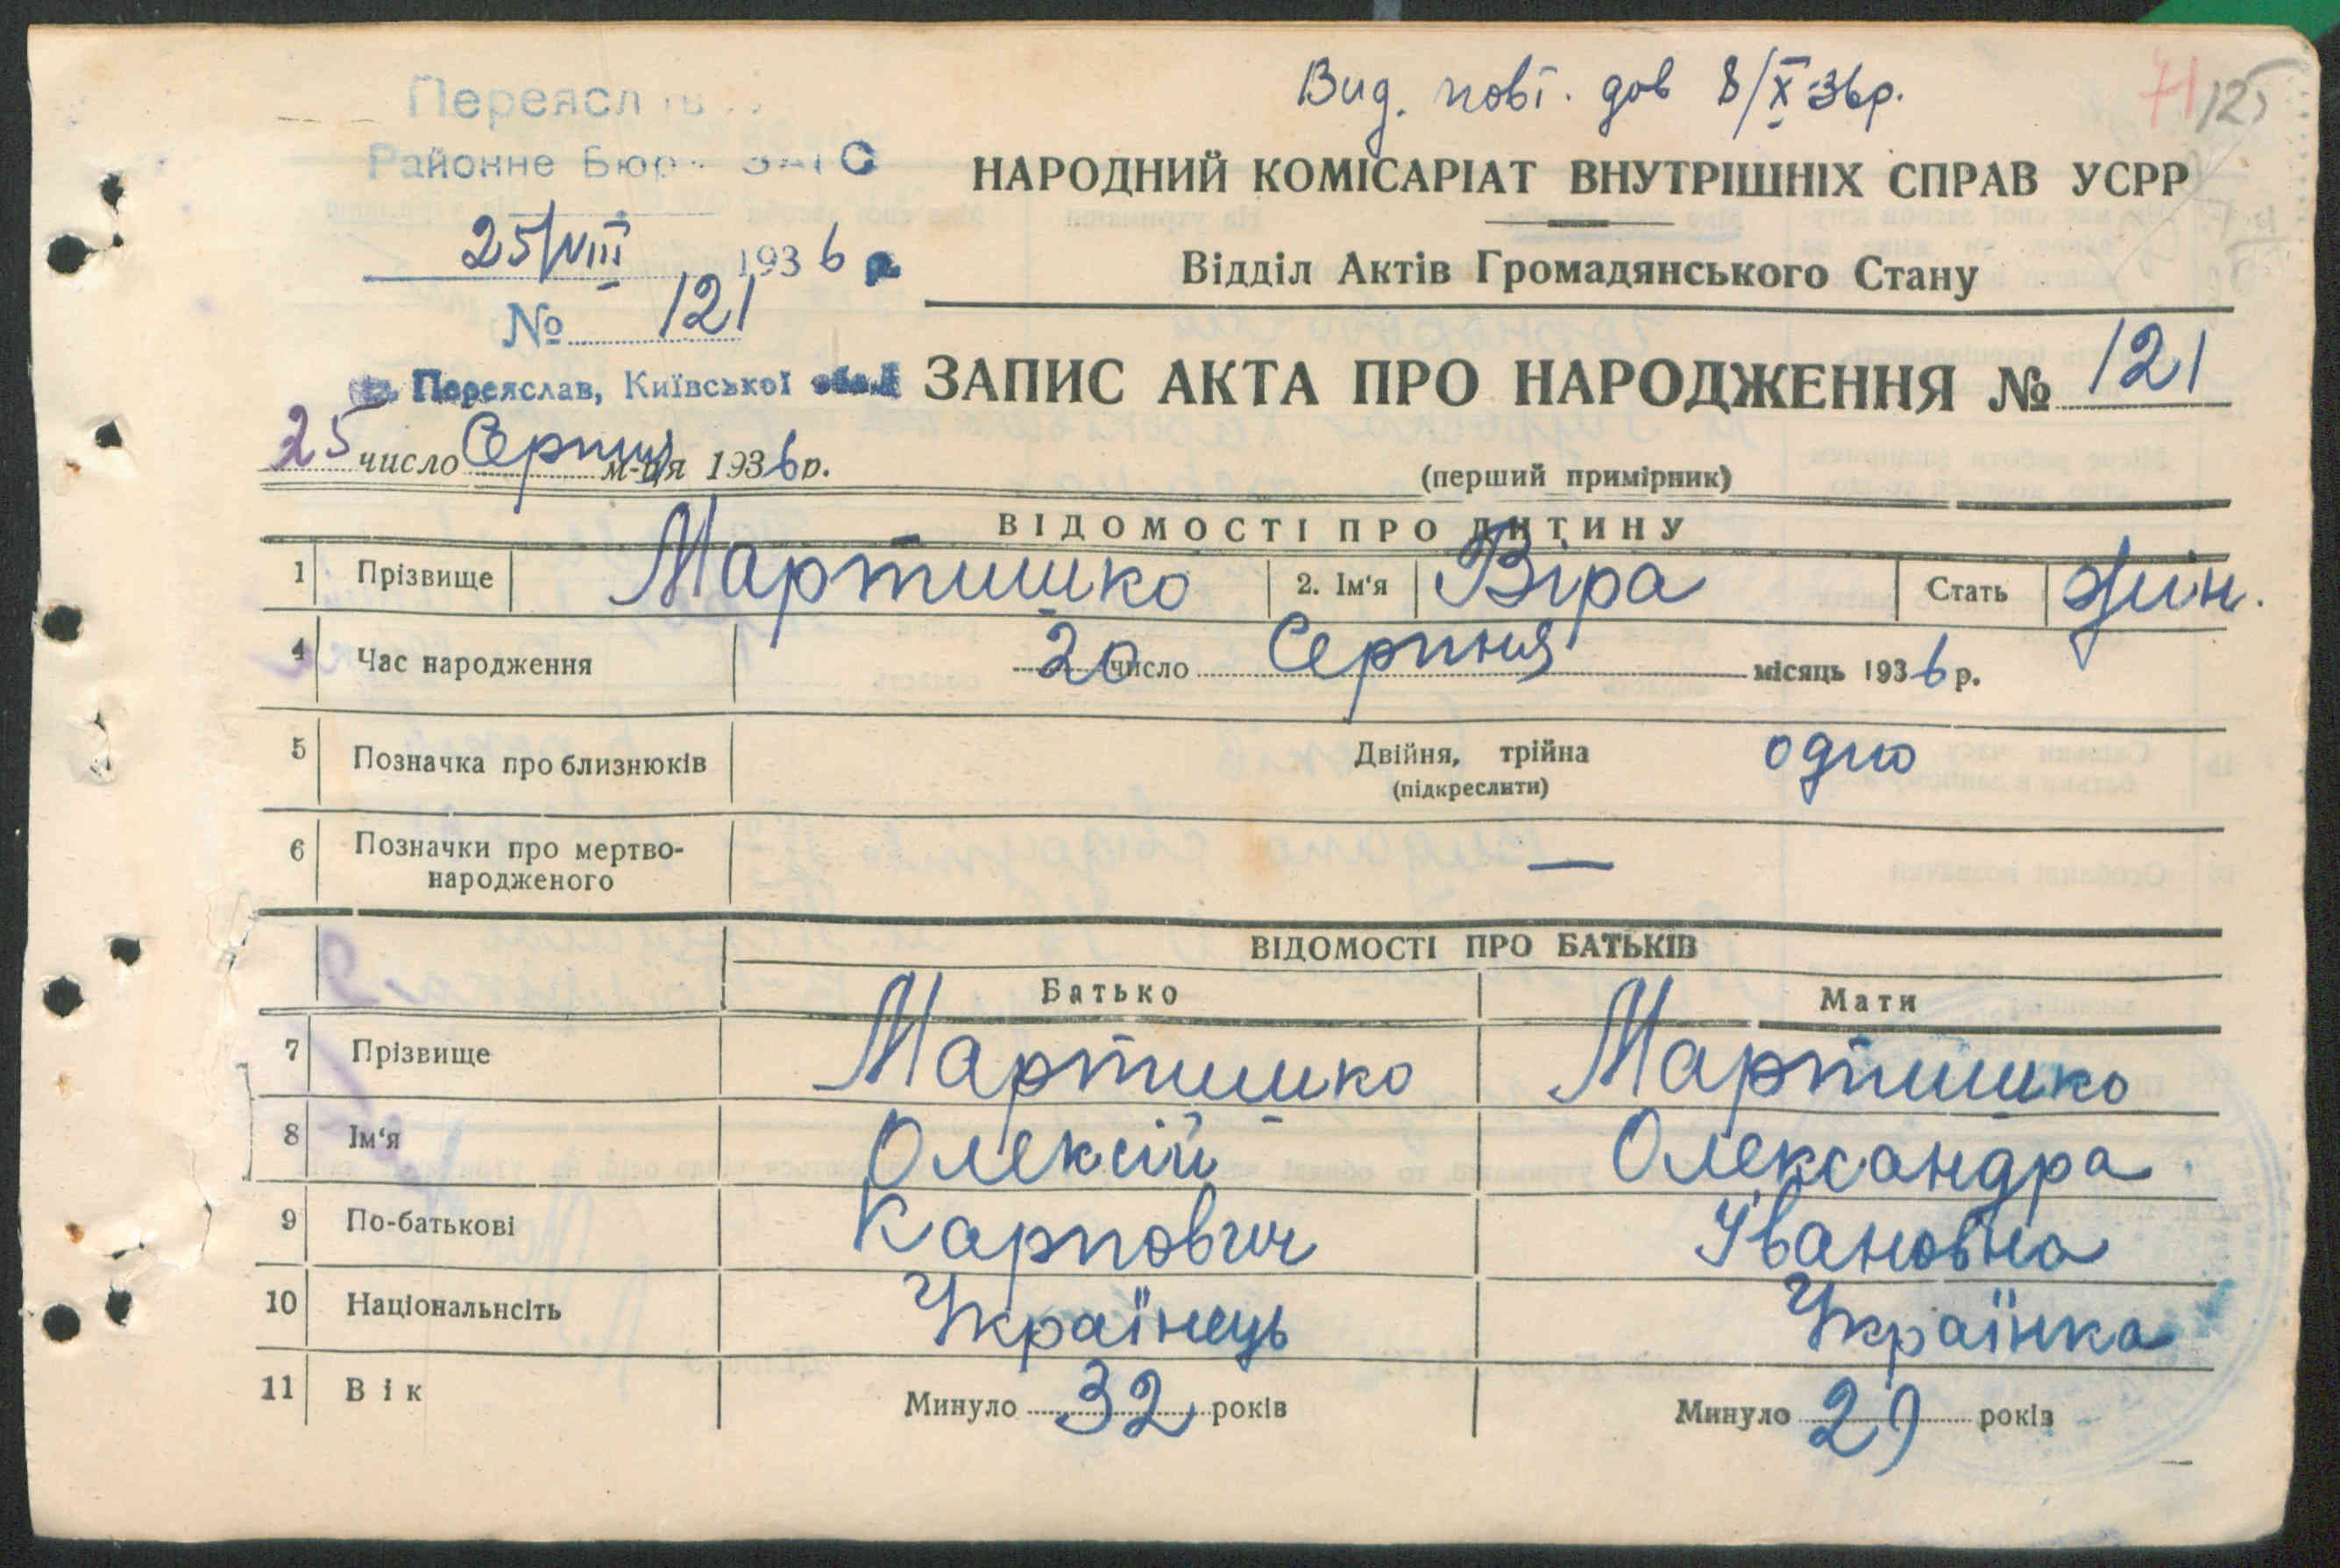 Вид. повт. дов 8/X 36р.
71 125
Переяслів
Районне Бюро ЗАГС
25/VIII 1936 р.
№ 121
Переяслав, Київської обл.
НАРОДНИЙ КОМІСАРІАТ ВНУТРІШНІХ СПРАВ УСРР
Відділ Актів Громадянського Стану
ЗАПИС АКТА ПРО НАРОДЖЕННЯ № 121
25 число Серпня м-ця 1936 р.
(перший примірник)
ВІДОМОСТІ ПРО ДИТИНУ
1 Прізвище Мартишко 2. Ім‘я Віра Стать жін.
4 Час народження 20 число Серпня місяць 1936 р.
5 Позначка про близнюків Двійня, трійна одно
(підкреслити)
6 Позначки про мертво-
народженого —
ВІДОМОСТІ ПРО БАТЬКІВ
Батько Мати
7 Прізвище Мартишко Мартишко
8 Ім‘я Олексій Олександра
9 По-батькові Карпович Івановна
10 Національнсіть Українець Українка
11 Вік Минуло 32 років Минуло 29 років